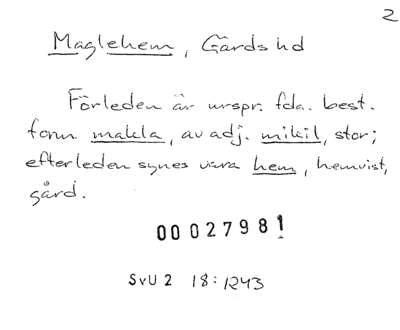 2
Maglehem, Gärds hd
Förleden är urspr. fda. best.
form makla, av adj. mikil, stor;
efterleden synes vara hem, hemvist,
gård.
00027981
SvU 2 18:1243